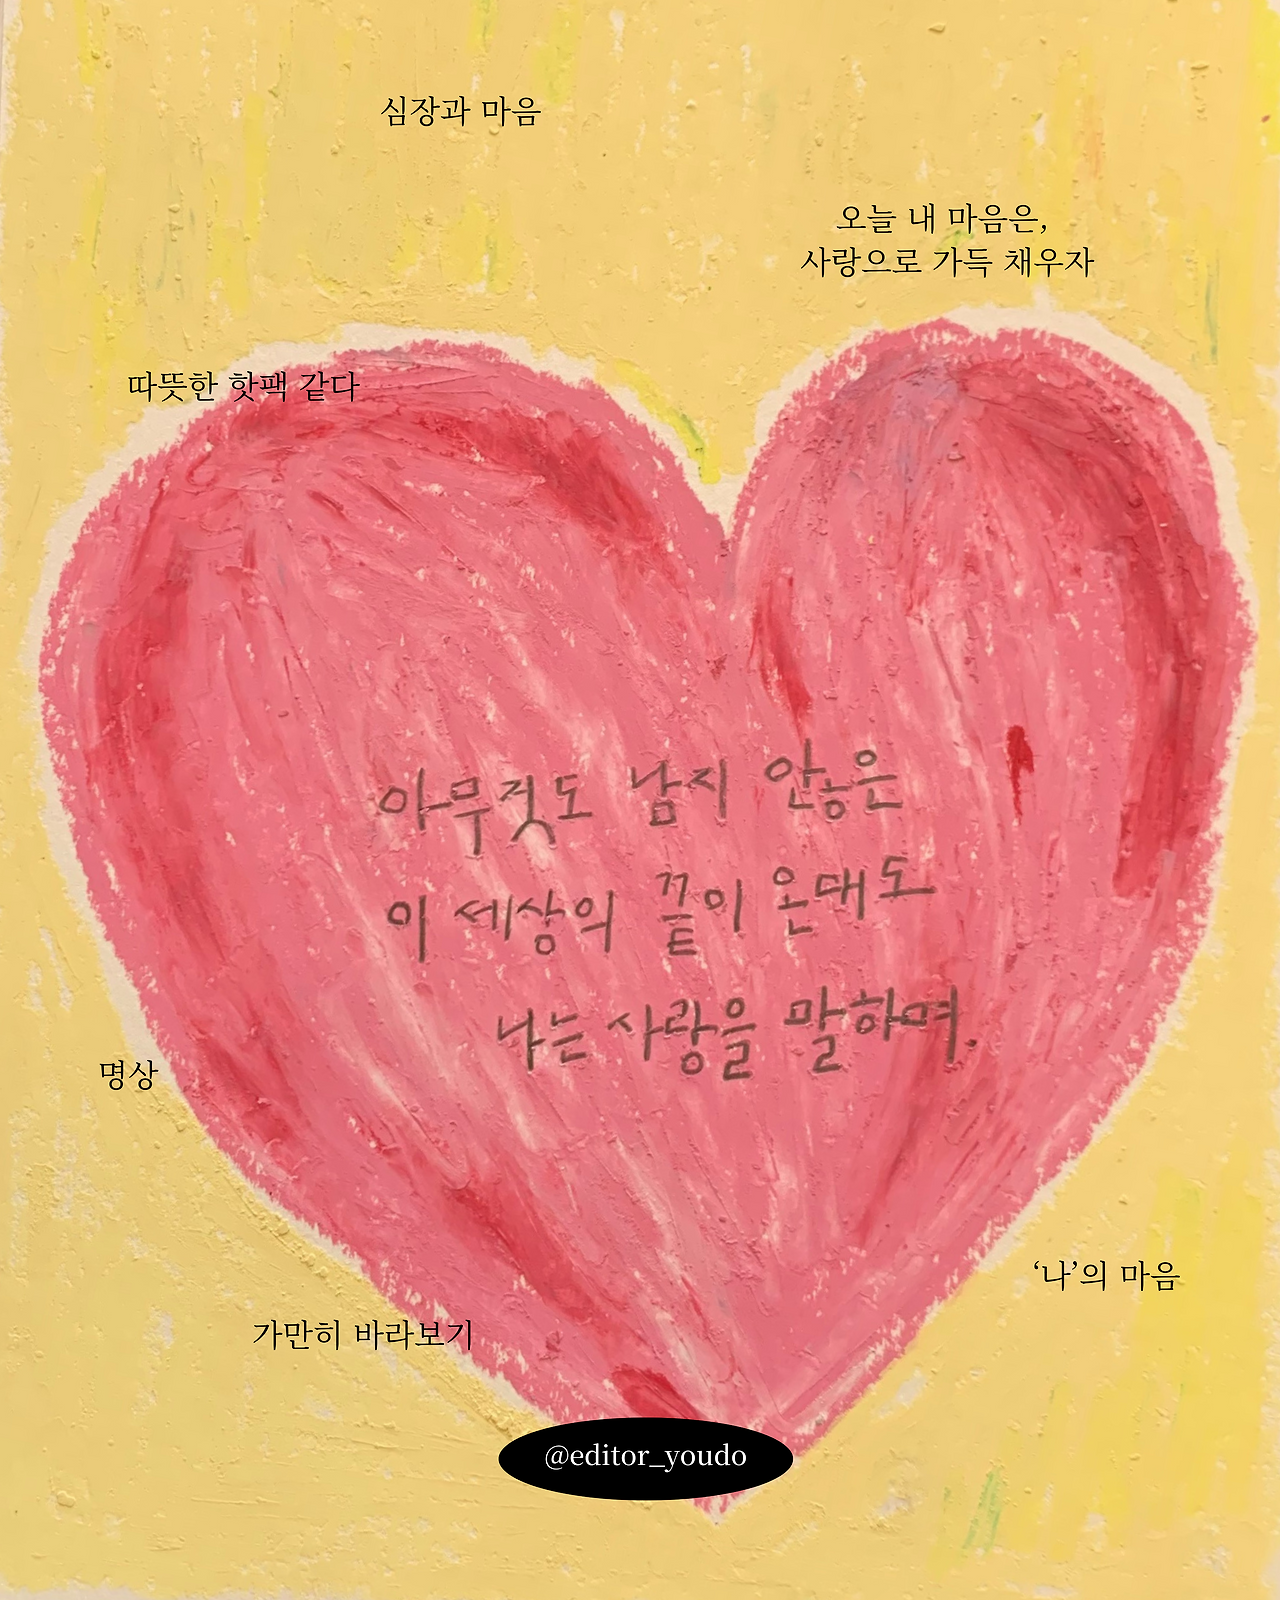 심장과 마음
오늘 내 마음은,
사랑으로 가득 채우자
따뜻한 핫팩 같다
아무것도 남지 않은
이 세상의 끝이 온대도
나는 사랑을 말하며.
명상
‘나’의 마음
가만히 바라보기
@editor_youdo